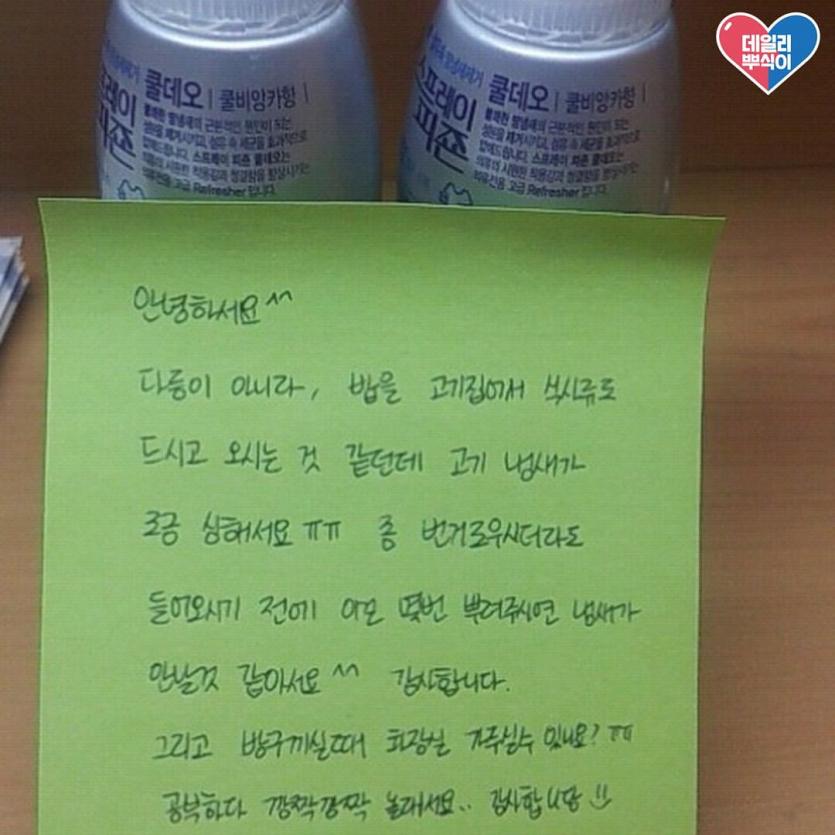 데일리
뿌식이
쿨데오 | 쿨비앙카향 |
스프레이
피죤
불쾌한 땀냄새의 근본적인 원인이 되는
성분을 제거시키고, 섬유 속 세균을 효과적으로
억제해드립니다. 스프레이 피죤 쿨데오는
의류의 시원한 착용감과 청결함을 향상시키는
의류전용 고급 Refresher 입니다.
쿨데오 | 쿨비앙카향 |
스프레이
피죤
불쾌한 땀냄새의 근본적인 원인이 되는
성분을 제거시키고, 섬유 속 세균을 효과적으로
억제해드립니다. 스프레이 피죤 쿨데오는
의류의 시원한 착용감과 청결함을 향상시키는
의류전용 고급 Refresher 입니다.
안녕하세요^^
다름이 아니라, 밥을 고기집에서 식사류로
드시고 오시는 것 같던데 고기 냄새가
조금 심해서요 ㅠㅠ 좀 번거로우시더라도
들어오시기 전에 이모 몇번 뿌려주시면 냄새가
안날것 같아서요^^ 감사합니다.
그리고 방구끼실때 화장실 가주실수 있나요? ㅠㅠ
공부하다 깜짝깜짝 놀래서요.. 감사합니당